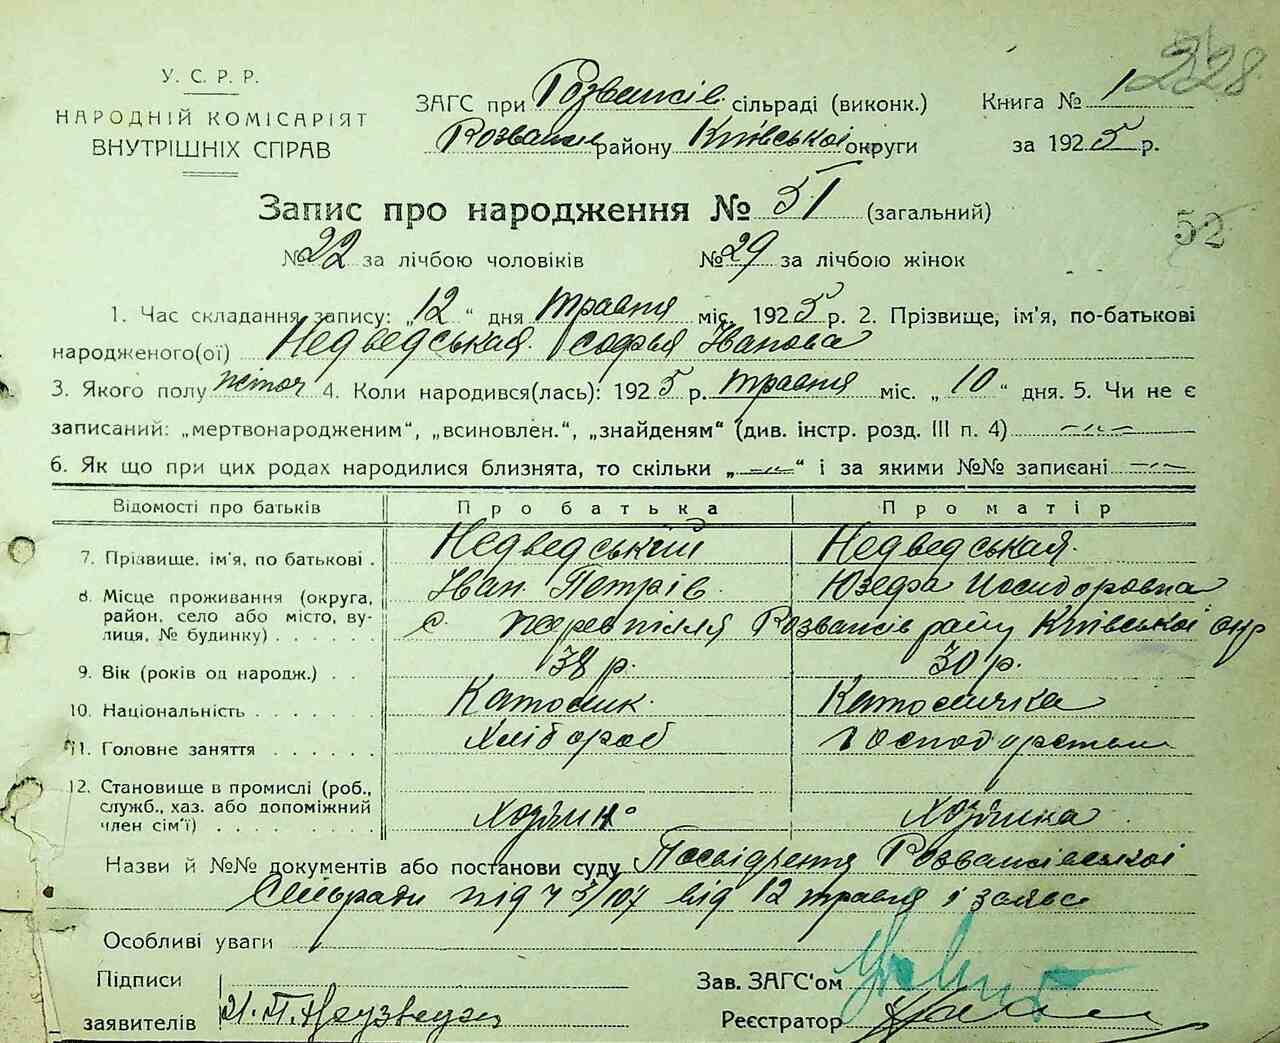 У. С. Р. Р.
НАРОДНІЙ КОМІСАРІЯТ
ВНУТРІШНІХ СПРАВ
ЗАГС при Розважів. сільраді (виконк.) Книга № 1
Розважів району Київської округи за 1925 р.
328
Запис про народження № 51 (загальний)
52
№ 22 за лічбою чоловіків № 29 за лічбою жінок
1. Час складання запису: „12“ дня травня міс. 1925 р. 2. Прізвище, ім'я, по-батькові
народженого(ої) Недведськая Софья Іванова
3. Якого полу жіноч 4. Коли народився(лась): 1925 р. травня міс. „10“ дня. 5. Чи не є
записаний: „мертвонародженим“, „всиновлен.“, „знайденям“ (див. інстр. розд. III п. 4) —„—
6. Як що при цих родах народилися близнята, то скільки „—„—“ і за якими №№ записані —„—
Відомості про батьків Про батька Про матір
7. Прізвище, ім'я, по батькові . Недведський Недведськая.
Іван Петрів. Юзефа Исидоровна
8. Місце проживання (округа, район, село або місто, вулиця, № будинку) . . . . . . с. Жеревпілля Розважів райну Київської окр
9. Вік (років од народж.) . . 38 р. 30 р.
10. Національність . . . . . . . Католик. Католичка
11. Головне заняття . . . . . . Хлібороб господарством
12. Становище в промислі (роб., служб., хаз. або допоміжний член сім'ї) . . . . . . . . Хозяин Хозяика
Назви й №№ документів або постанови суду Посвідчення Розважівської
Сільради під ч 5/107 від 12 травня і заява
Особливі уваги
Підписи
заявителів
Зав. ЗАГС'ом
Реєстратор